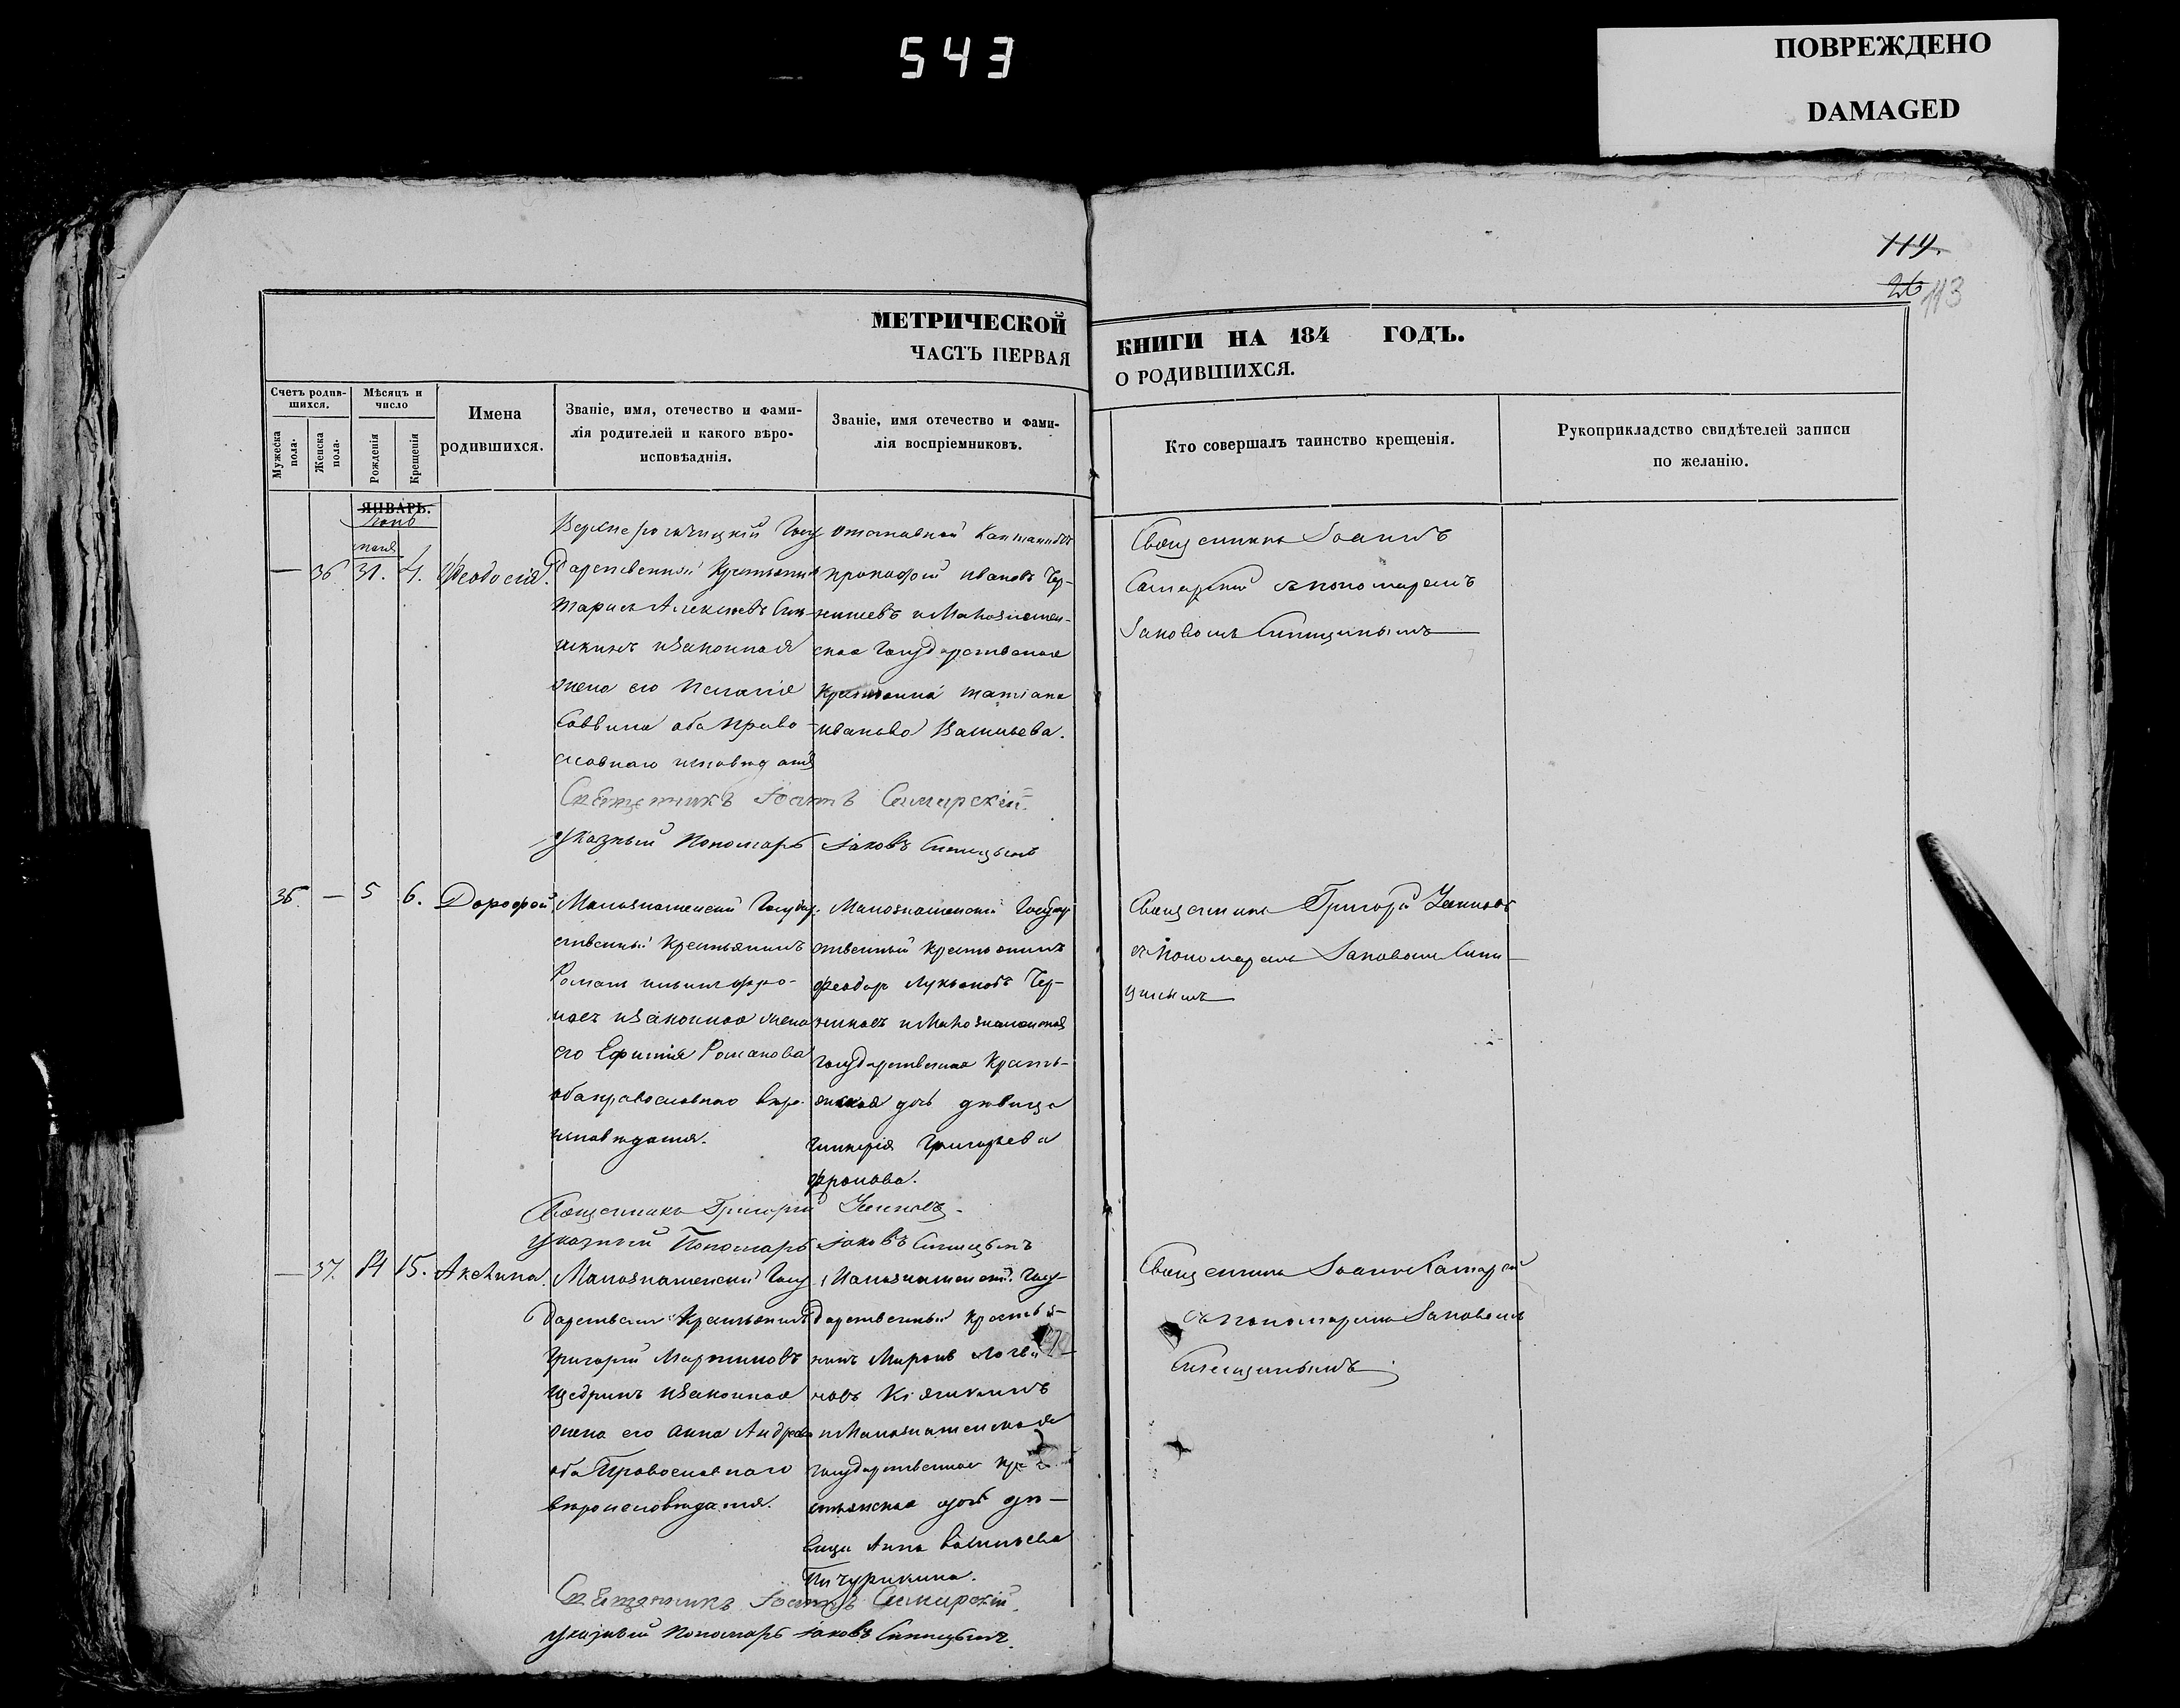 543
ПОВРЕЖДЕНО
DAMAGED
119.
26
113
МЕТРИЧЕСКОЙ
ЧАСТЬ ПЕРВАЯ
КНИГИ НА 184 ГОДЪ.
О РОДИВШИХСЯ.
Счетъ родив-
шихся.
Мужеска
пола.
Женска
пола.
Мѣсяцъ и
число
Рожденія
Крещенія
Имена
родившихся.
Званіе, имя, отечество и фами-
лія родителей и какого вѣро-
исповѣаднія.
Званіе, имя отечество и фами-
лія воспріемниковъ.
Кто совершалъ таинство крещенія.
Рукоприкладство свидѣтелей записи
по желанію.
ЯНВАРЬ.
Іюнь
маія
— 36. 31. 4. Феодосія.
Верхнерогачицкій Госу
Дарственный Крестьянинъ
Тарасъ Алексѣевъ
изаконная
жена его Пелагія
Саввина оба Право-
славнаго исповѣданія
отставной Капитанъ
прокофій ивановъ Чер-
нишевъ и Малознамен-
ская Государственная
Крестьянка татіана
иванова Васильева.
Священникъ Іоаннъ
Самарскій спономаремъ
Іаковомъ Синицинымъ
Священникъ Іоаннъ Самарскій.
указный Пономарь Іаковъ Синицынъ
36. — 5 6. Дорофей
Малознаменскій Государ-
ственный Крестьянинъ
Романъ ильинъ Фро-
ловъ изаконная жена
его Ефимія Романова
обаправославнаго вѣро-
исповѣданія.
Малознаменскій Государ
ственный крестьянинъ
феодоръ Лукьяновъ Чер-
никовъ иМалознаменская
Государственная Кресть-
янская дочь дѣвица
гликерія Григорьева
фролова.
Священникъ Григорій
спономаремъ Іаковомъ Сини-
цинымъ
Священникъ Григорій
указный Пономарь Іаковъ Синицынъ
— 37. 14 15. Акелина.
Малознаменскій Госу-
Дарственный Крестьянинъ
Григорій Мартиновъ
щедринъ изаконная
жена его анна Андреева
оба Православнаго
вѣроисповѣданія.
Малознаменскій Госу-
Дарственный крестья-
нинъ Миронъ Логви-
новъ
иМалознаменская
государственная кре-
стьянская дочь дѣ-
вица Анна васильева
Пичурикина.
Священникъ Іоаннъ Самарскій
спономаремъ Іаковомъ
Синицинымъ
Священникъ Іоаннъ Самарскій.
указный Пономарь Іаковъ Синицынъ.